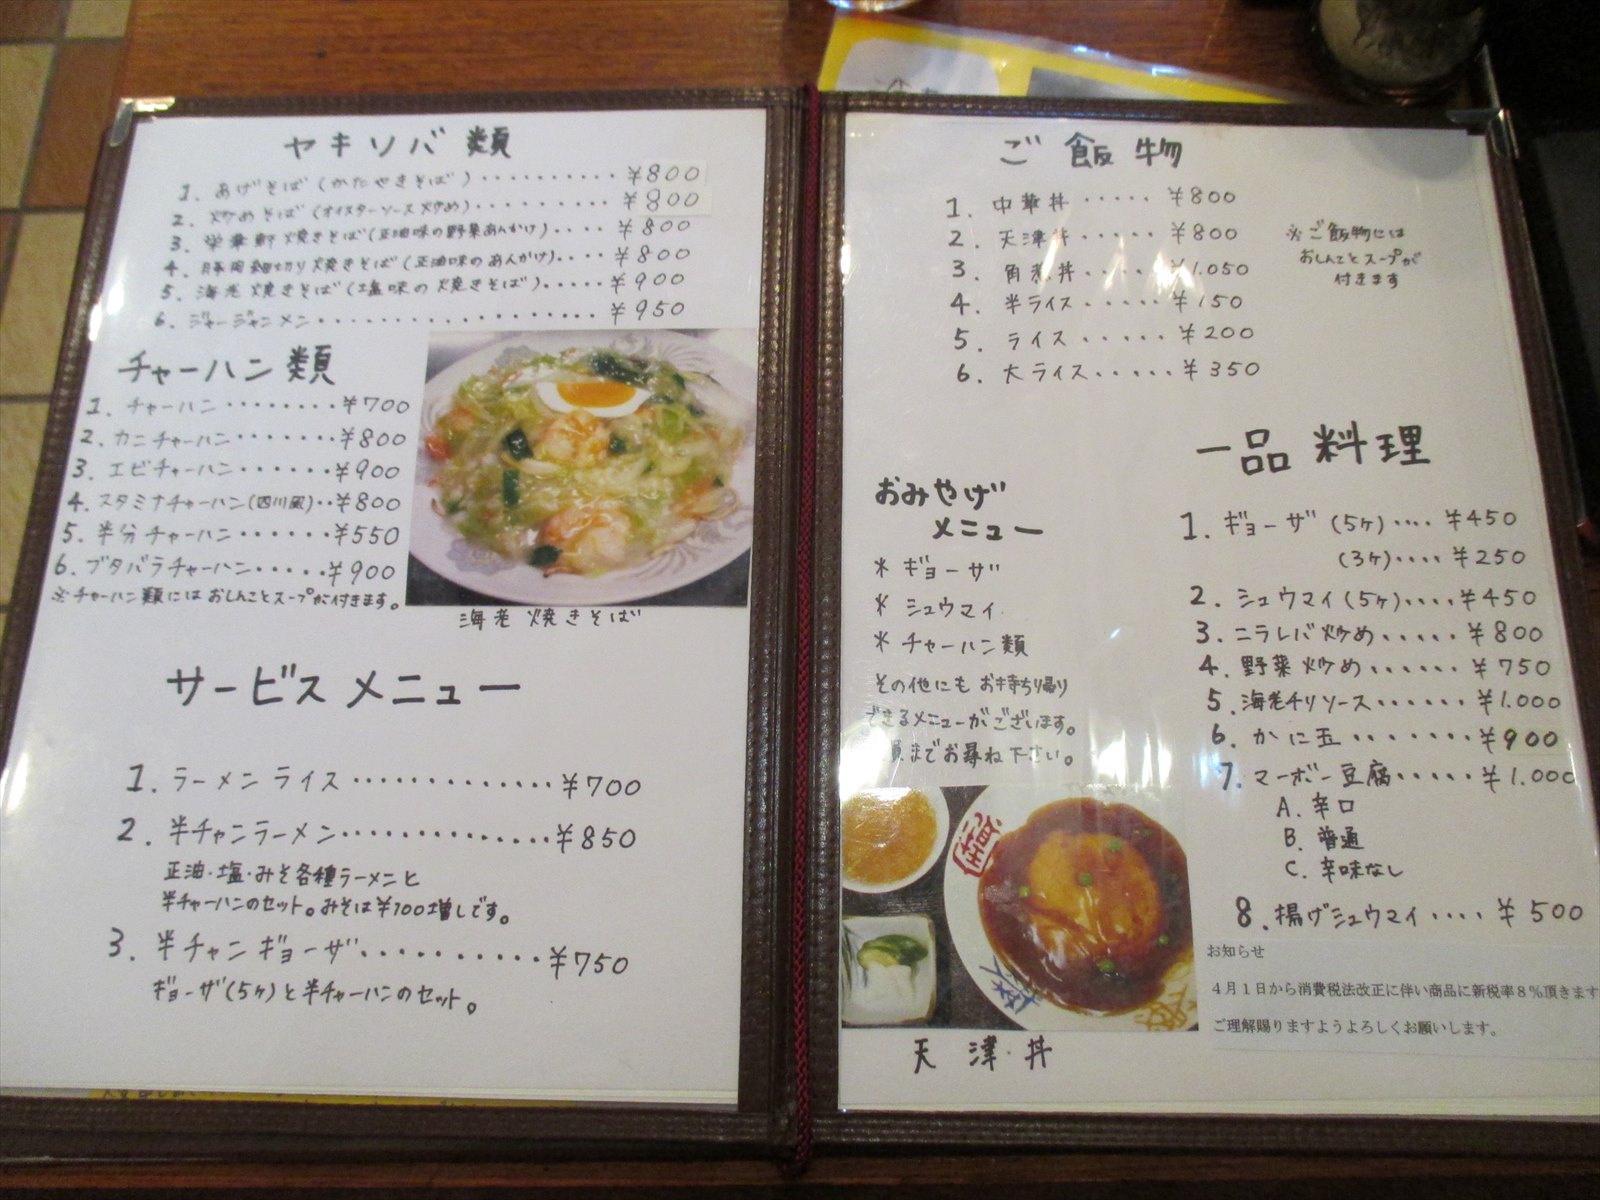 ヤキソバ 類
1. あげそば(かたやきそば)・・・・・・・・・・¥800
2. 炒めそば(オイスターソース炒め)・・・・・・・・・・¥800
3. 栄華軒焼きそば(正油味の野菜あんかけ)・・・・¥800
4. 豚肉細切り焼きそば(正油味のあんかけ)・・・・¥800
5. 海老焼きそば(塩味の焼きそば)・・・・・¥900
6. ジャージャンメン・・・・・・・・・・・・・・・・・・・¥950
チャーハン 類
1. チャーハン・・・・・・・・¥700
2. カニチャーハン・・・・・・・¥800
3. エビチャーハン・・・・・・¥900
4. スタミナチャーハン(四川風)・・¥800
5. 半分チャーハン・・・・・・¥550
6. ブタバラチャーハン・・・・・¥900
※チャーハン類にはおしんことスープが付きます。
海老焼きそば
サービスメニュー
1. ラーメンライス・・・・・・・・・・・・・¥700
2. 半チャンラーメン・・・・・・・・・・・・・・¥850
正油・塩・みそ各種ラーメンと
半チャーハンのセット。みそは¥100増しです。
3. 半チャンギョーザ・・・・・・・・・・・¥750
ギョーザ(5ケ)と半チャーハンのセット。
ご飯物
1. 中華丼・・・・・¥800
2. 天津丼・・・・・・¥800
3. 角煮丼・・・・・・¥1.050
4. 半ライス・・・・・・¥150
5. ライス・・・・・・¥200
6. 大ライス・・・・・・¥350
※ご飯物には
おしんことスープが
付きます
おみやげ
メニュー
* ギョーザ
* シュウマイ
* チャーハン類
その他にもお持ち帰り
できるメニューがございます。
員までお尋ね下さい。
天津丼
一品料理
1. ギョーザ(5ケ)・・・・¥450
(3ケ)・・・・¥250
2. シュウマイ(5ケ)・・・・¥450
3. ニラレバ炒め・・・・・¥800
4. 野菜炒め・・・・・・¥750
5. 海老チリソース・・・・・・¥1.000
6. かに玉・・・・・・・・¥900
7. マーボー豆腐・・・・・¥1.000
A. 辛口
B. 普通
C. 辛味なし
8. 揚げシュウマイ・・・・¥500
お知らせ
4月1日から消費税法改正に伴い商品に新税率8%頂きます
ご理解賜りますようよろしくお願いします。